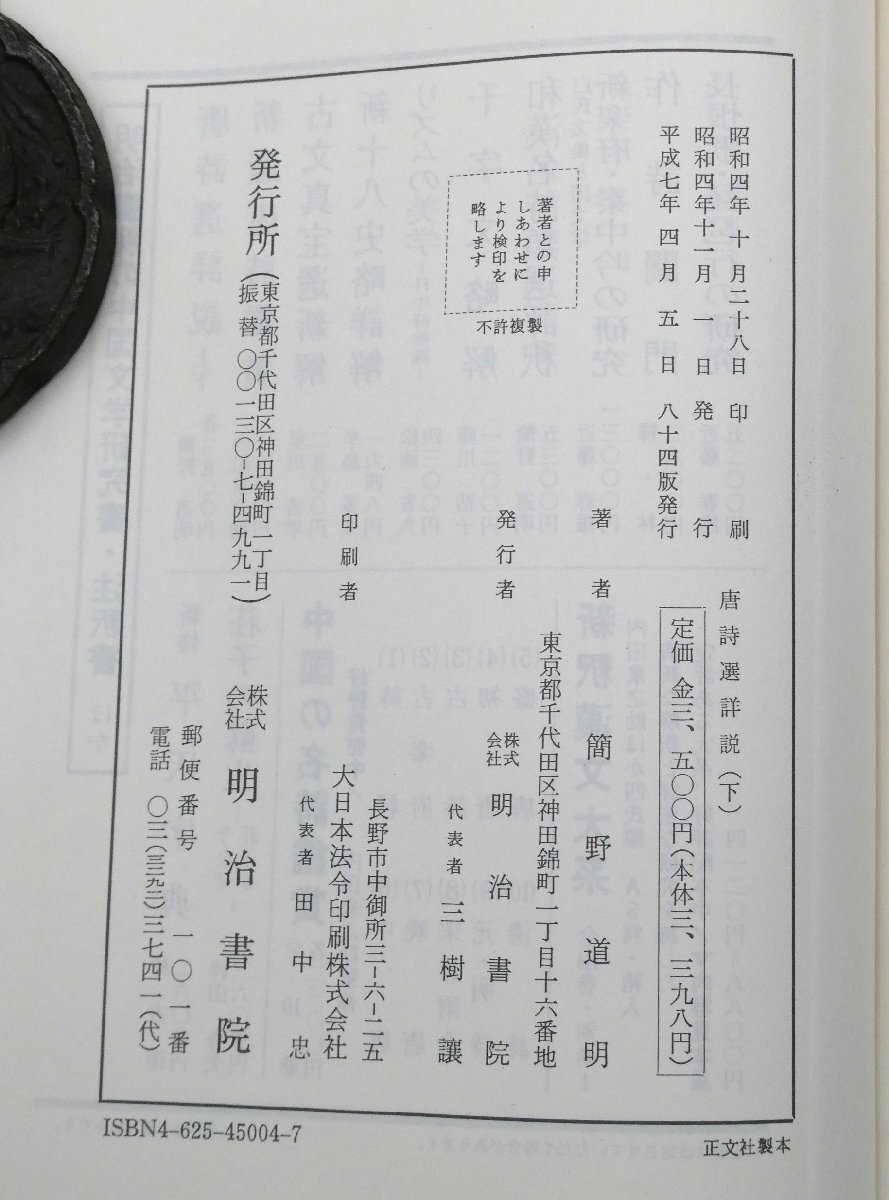 昭和四年十月二十八日 印刷
昭和四年十一月一日 発行
平成七年四月五日 八十四版発行
唐詩選詳説（下）
定価 金三、五〇〇円（本体三、三九八円）
著者との申
しあわせに
より検印を
略します
不許複製
著者 簡野道明
東京都千代田区神田錦町一丁目十六番地
発行者 株式会社 明治書院
代表者 三樹 譲
長野市中御所三-六-二五
印刷者 大日本法令印刷株式会社
代表者 田中 忠
発行所
（東京都千代田区神田錦町一丁目
振替 〇〇一三〇-七-四九九一）
株式会社 明治書院
郵便番号 一〇一番
電話 〇三（三二九二）三七四一（代）
ISBN4-625-45004-7
正文社製本